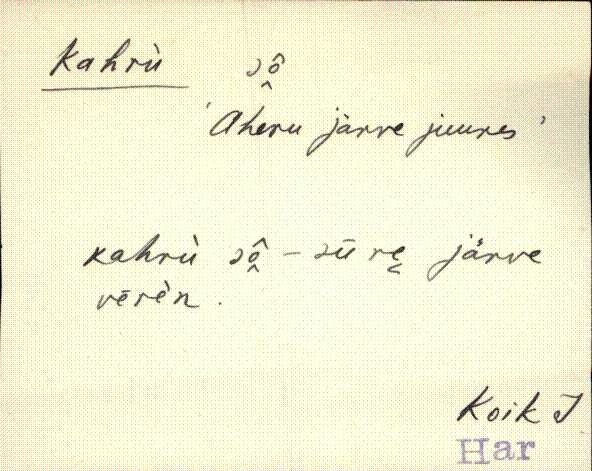 kahrù sô̭
'Aheru järve juures'
kahrù sô̭ – sūrę järve
vērèn.
Koik I
Har